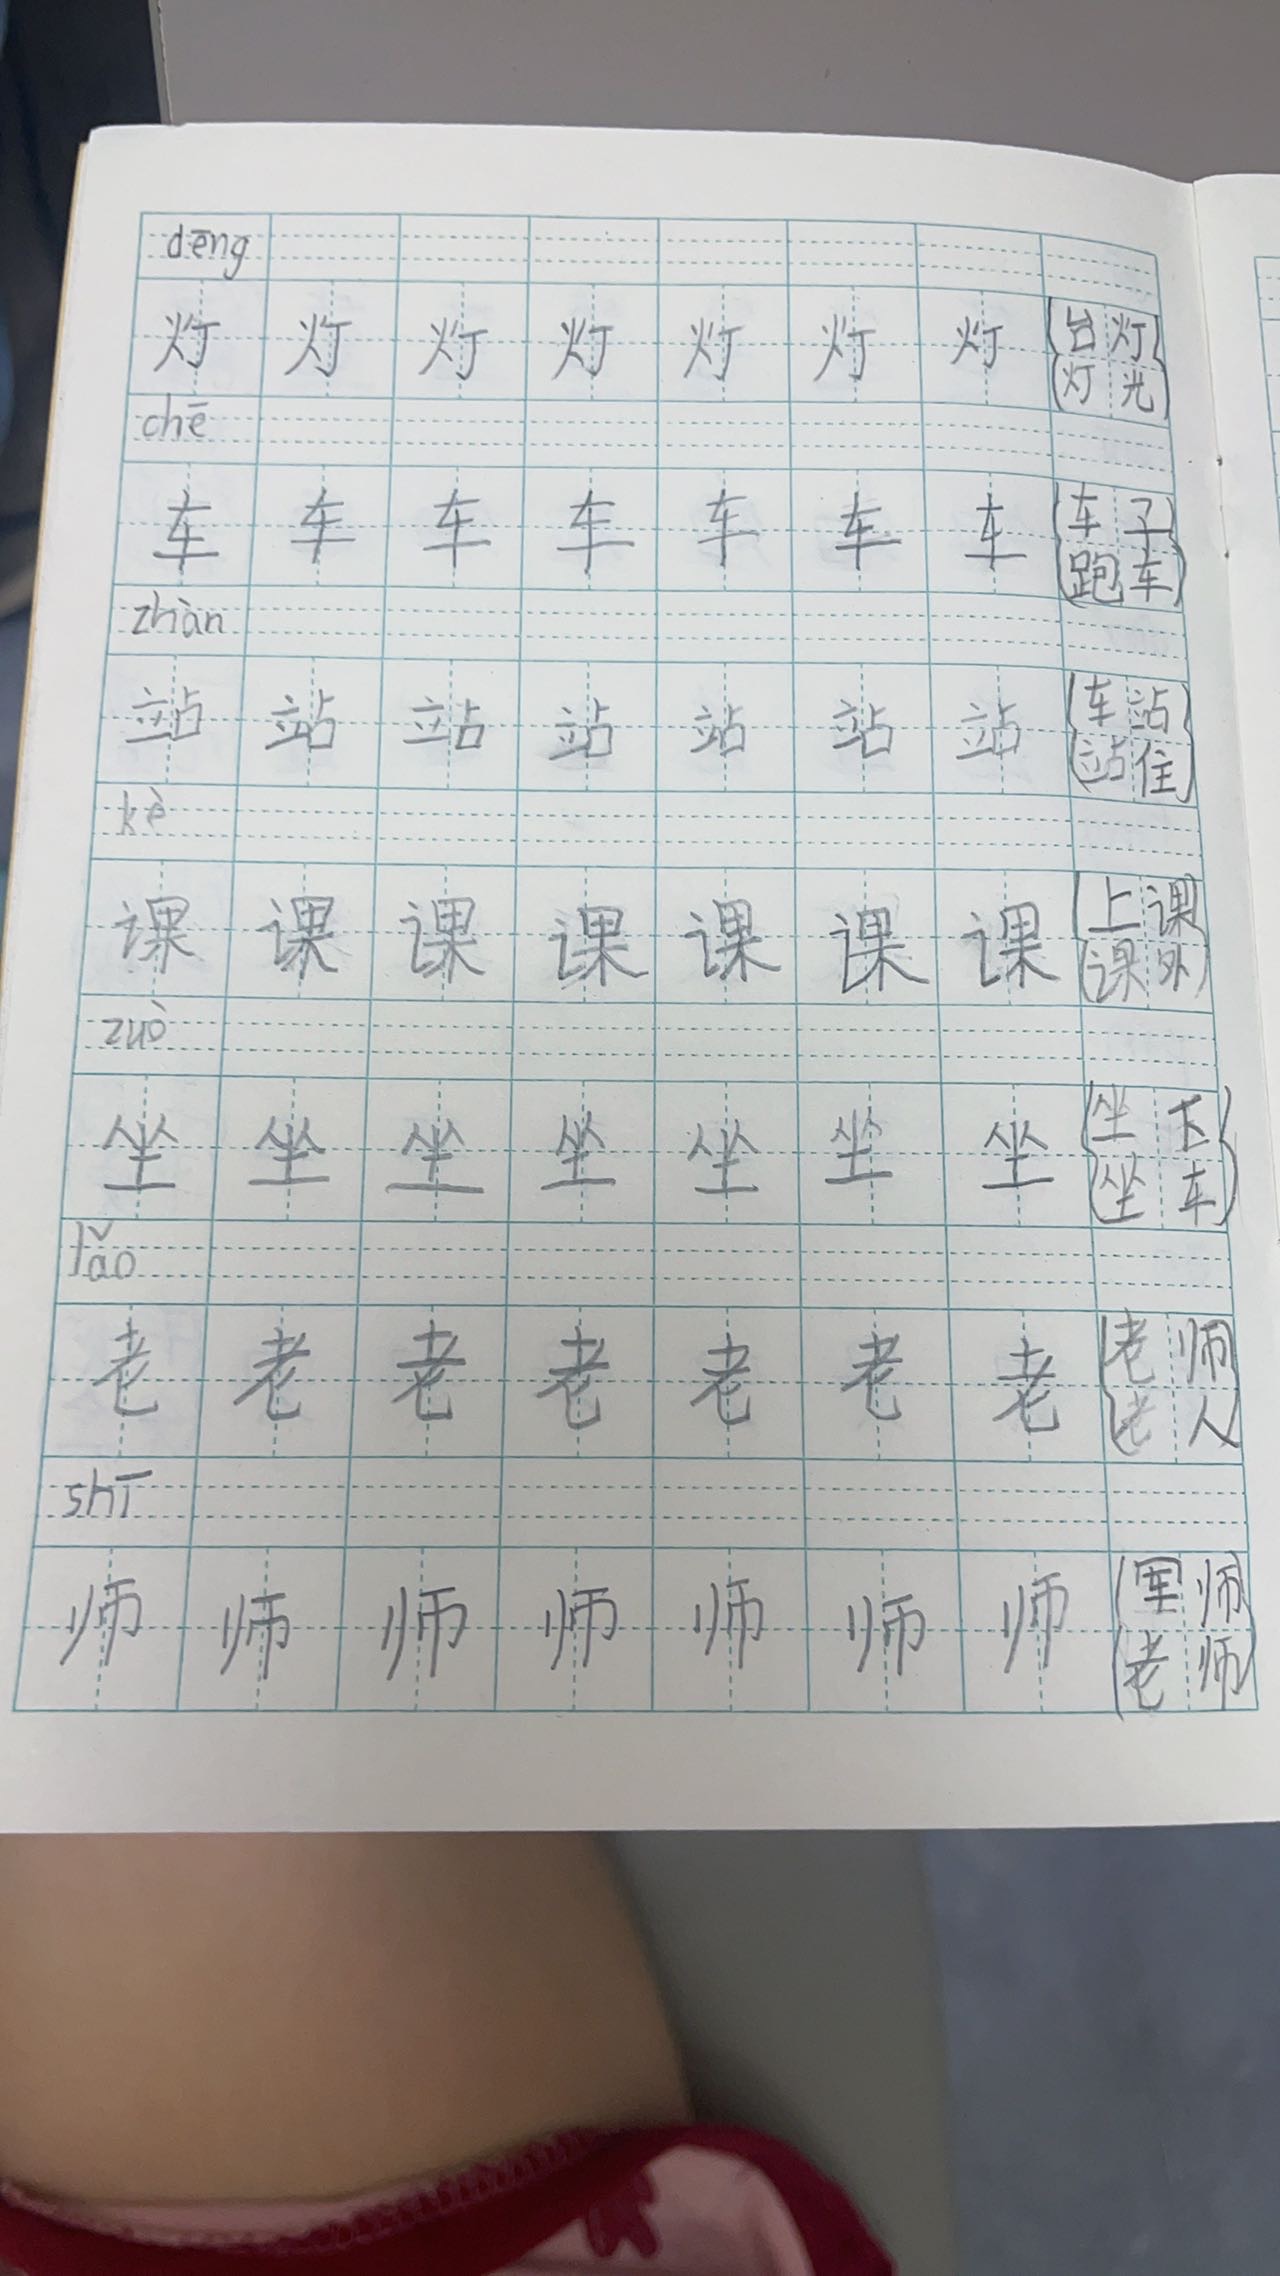 dēng
灯 灯 灯 灯 灯 灯 灯 台灯
灯光
chē
车 车 车 车 车 车 车 车子
跑车
zhàn
站 站 站 站 站 站 站 车站
站住
kè
课 课 课 课 课 课 课 上课
课外
zuò
坐 坐 坐 坐 坐 坐 坐 坐下
坐车
lǎo
老 老 老 老 老 老 老 老师
老人
shī
师 师 师 师 师 师 师 军师
老师